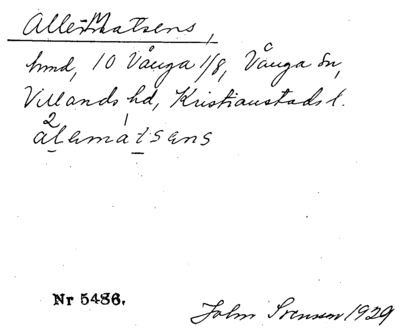 Alle-Matsens,
hmd, 10 Vånga 1/8, Vånga sn,
Villands hd, Kristianstads l.
2 1
ålemátsens
Nr 5486.
John Svenson 1929